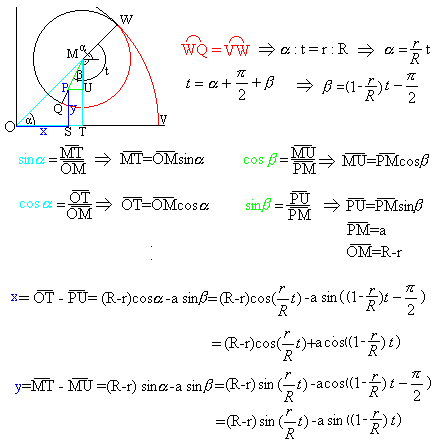 W
M α t
β
P U
Q y
O α x S T V
WQ = VW ⇒ α : t = r : R ⇒ α = r/R t
t = α + π/2 + β ⇒ β = (1- r/R) t - π/2
sin α = MT/OM ⇒ MT=OM sin α
cos β = MU/PM ⇒ MU=PM cos β
cos α = OT/OM ⇒ OT=OM cos α
sin β = PU/PM ⇒ PU=PM sin β
PM=a
OM=R-r
x= OT - PU= (R-r)cos α -a sin β =(R-r)cos( r/R t) -a sin ((1- r/R) t - π/2)
= (R-r)cos( r/R t)+a cos((1- r/R) t)
y=MT - MU =(R-r) sin α -a sin β =(R-r) sin ( r/R t) -a cos((1- r/R) t - π/2)
=(R-r) sin ( r/R t) -a sin ((1- r/R) t)